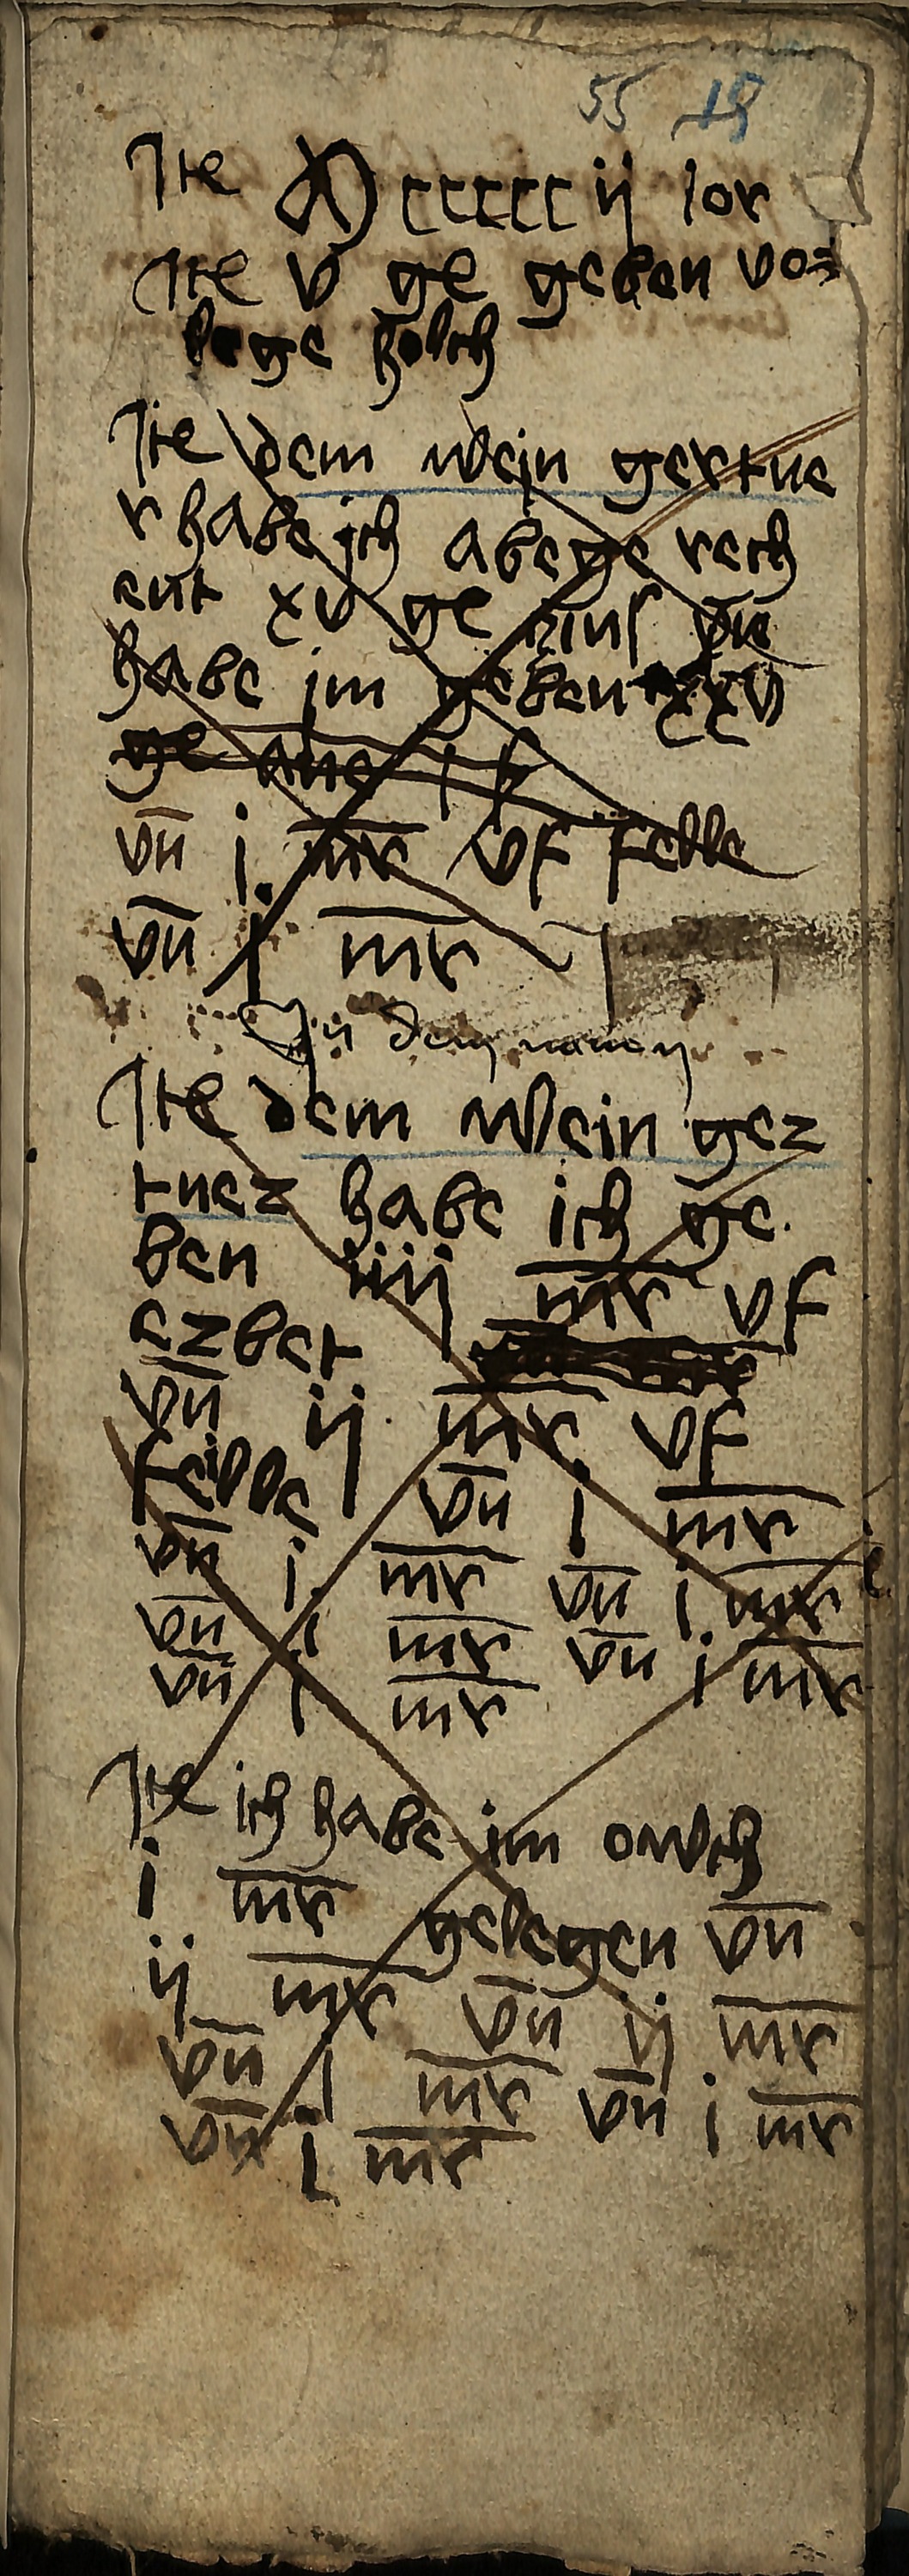 55 18
Ite ccccc ij lor
Ite v ge geben vor
lage holcz
Ite dem wein gertne
r habe ich abege rech
ent xv ge zins vn̄
habe jm geben xxv
ge ane 1
vn̄ j. mr vf felle
vn̄ j mr
In dem namen
Ite dem wein gez
tnez habe ich ge.
ben iiij mr vf
ezbet
vn̄ ij. mr vf
feille vn̄ j mr
vn̄ j. mr vn̄ j mr
vn̄ j mr vn̄ j mr
vn̄ j mr
Ite ich habe im owch
j mr gelegen vn̄
ij mr vn̄ ij mr
vn̄ j mr vn̄ j mr
vn̄ j mr